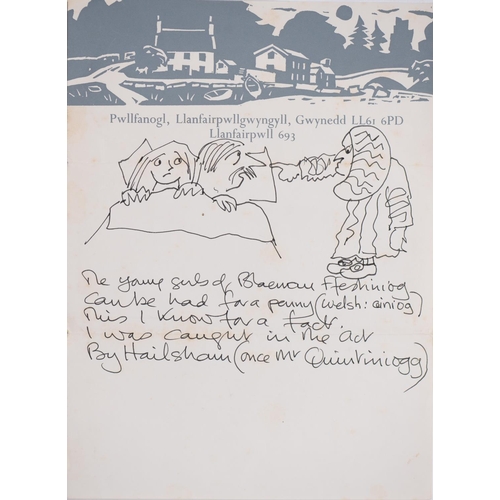 Pwllfanogl, Llanfairpwllgwyngyll, Gwynedd LL61 6PD
Llanfairpwll 693
The young girls of Blaenau Ffestiniog
Can be had for a penny (Welsh: ceiniog)
This I know for a fact.
I was caught in the act
By Hailsham (once Mr Quintiniogg)